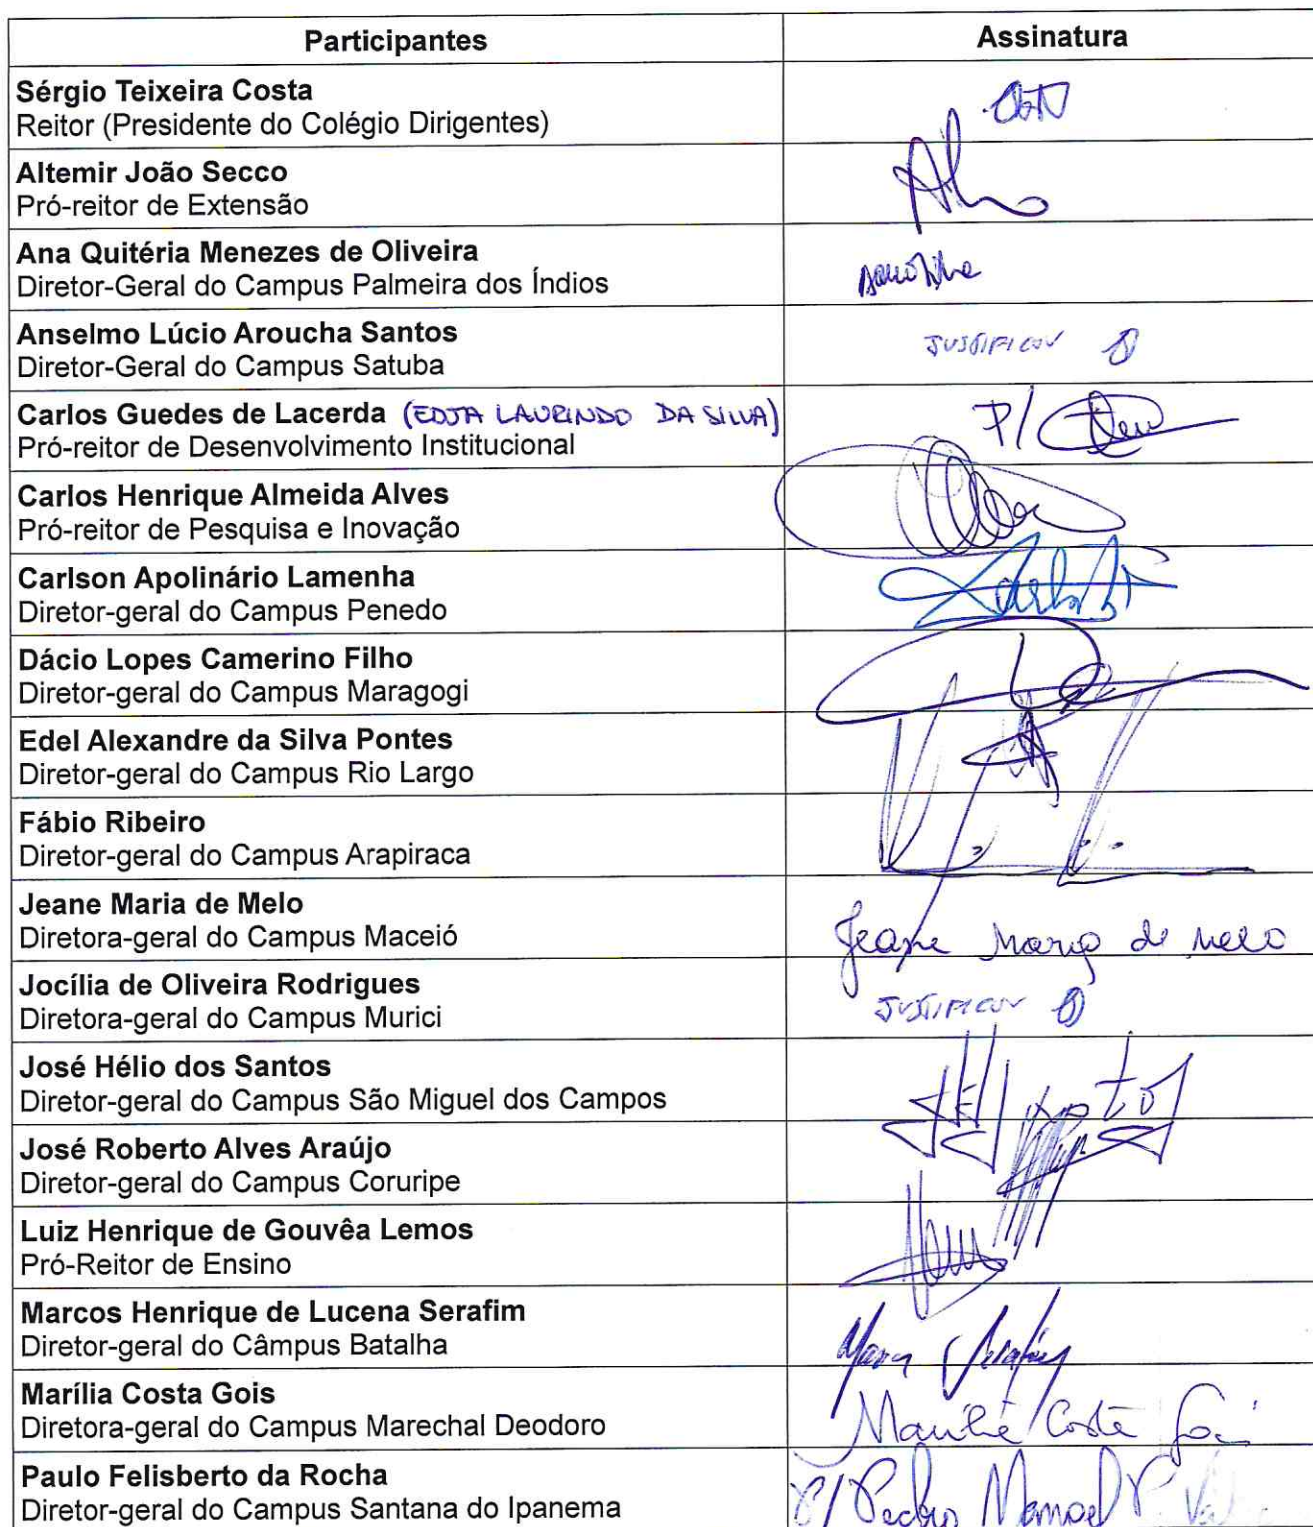 Participantes Assinatura
Sérgio Teixeira Costa
Reitor (Presidente do Colégio Dirigentes)
Altemir João Secco
Pró-reitor de Extensão
Ana Quitéria Menezes de Oliveira
Diretor-Geral do Campus Palmeira dos Índios
Anselmo Lúcio Aroucha Santos
Diretor-Geral do Campus Satuba
JUSTIFICOU
Carlos Guedes de Lacerda (EDJA LAURINDO DA SILVA)
Pró-reitor de Desenvolvimento Institucional
P/
Carlos Henrique Almeida Alves
Pró-reitor de Pesquisa e Inovação
Carlson Apolinário Lamenha
Diretor-geral do Campus Penedo
Dácio Lopes Camerino Filho
Diretor-geral do Campus Maragogi
Edel Alexandre da Silva Pontes
Diretor-geral do Campus Rio Largo
Fábio Ribeiro
Diretor-geral do Campus Arapiraca
Jeane Maria de Melo
Diretora-geral do Campus Maceió
Jeane Maria de Melo
Jocília de Oliveira Rodrigues
Diretora-geral do Campus Murici
JUSTIFICOU
José Hélio dos Santos
Diretor-geral do Campus São Miguel dos Campos
José Roberto Alves Araújo
Diretor-geral do Campus Coruripe
Luiz Henrique de Gouvêa Lemos
Pró-Reitor de Ensino
Marcos Henrique de Lucena Serafim
Diretor-geral do Câmpus Batalha
Marília Costa Gois
Diretora-geral do Campus Marechal Deodoro
Marília Costa Gois
Paulo Felisberto da Rocha
Diretor-geral do Campus Santana do Ipanema
P/ Pedro Manoel